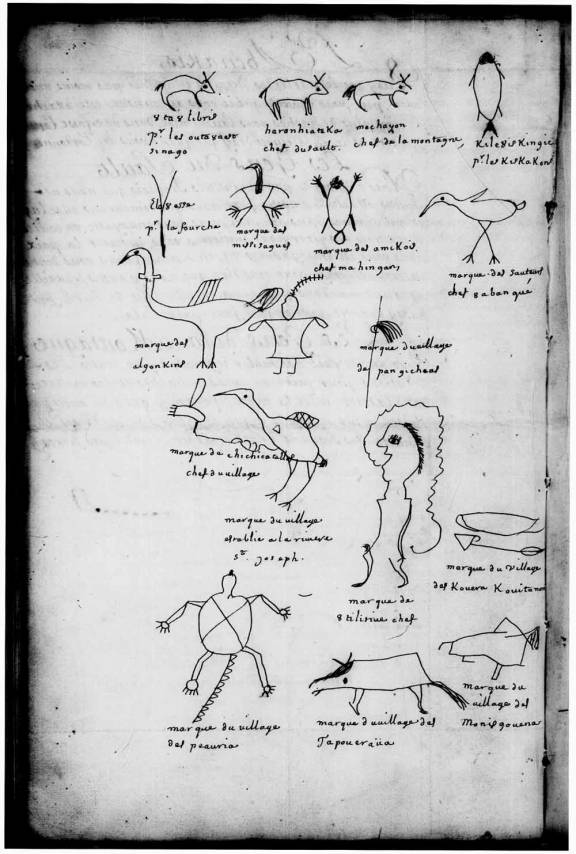 8ta8libris
pr. les outa8aes
sinago
haronhiateka
chef du sault.
mechayon
chef de la montagne,
Kile8isKingie
pr. les KisKaKons
Ela8esse
pr. la fourche
marque des
missisagues
marque des amiKois.
chef mahingan,
marque des sauteurs
chef 8abangué
marque des
algonkins
marque du village
de pangicheas
marque de chichicatalo
chef du village
marque du village
establie a la riviere
St. Joseph.
marque du village
des Kouera Kouitanon
marque de
8tilirine chef
marque du village
des peauria
marque du village des
Tapoueraüa
marque du
village des
Monisgouena